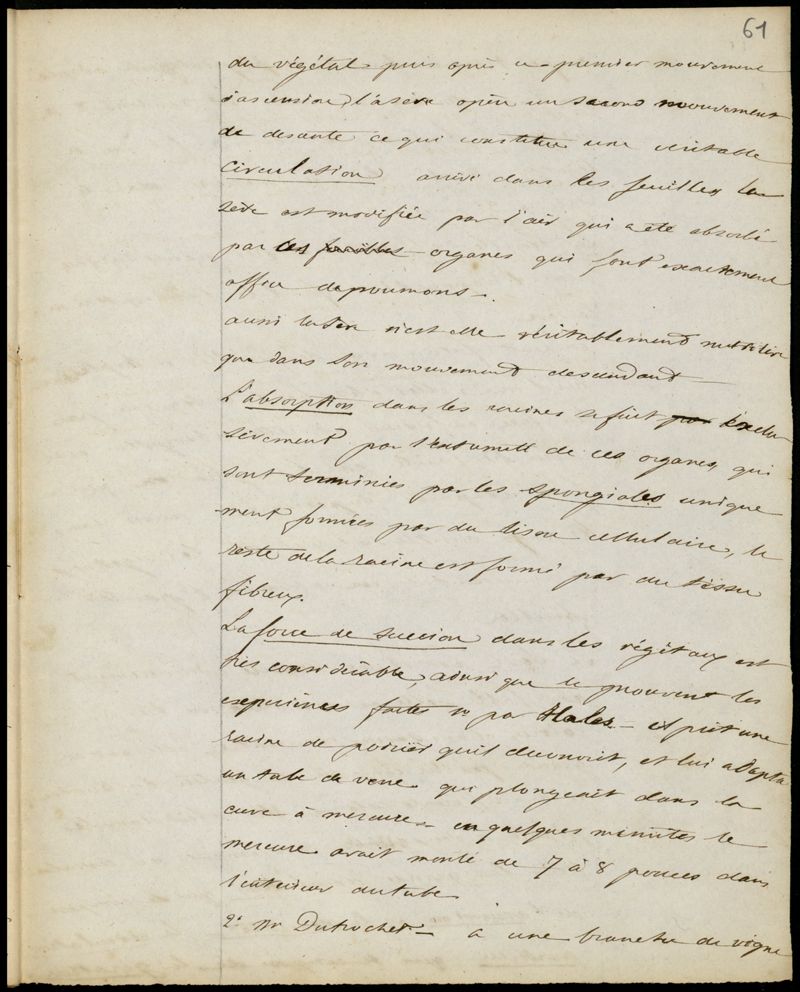 61
du végétal puis après ce premier mouvement
d'ascension, la sève opère un second mouvement
de descente ce qui constitue une véritable
circulation arrivé dans les feuilles la
sève est modifiée par l'air qui a été absorbé
par ces feuilles organes qui font exactement
office de poumons.
aussi la sève n'est elle véritablement nutritive
que dans son mouvement descendant
L'absorption dans les racines se fait par l'exclu
sivement par l'extrémité de ces organes, qui
sont terminées par les spongioles unique
ment formées par du tissu cellulaire, le
reste de la racine est formé par du tissu
fibreux.
La force de succion dans les végétaux est
très considérable, ainsi que le prouvent les
expériences faites par Hales - il prit une
racine de poirier qu'il découvrit, et lui adapta
un tube de verre qui plongeait dans la
cuve à mercure - en quelques minutes le
mercure avait monté de 7 à 8 pouces dans
l'intérieur du tube
2° Mr Dutrochet - a une branche de vigne